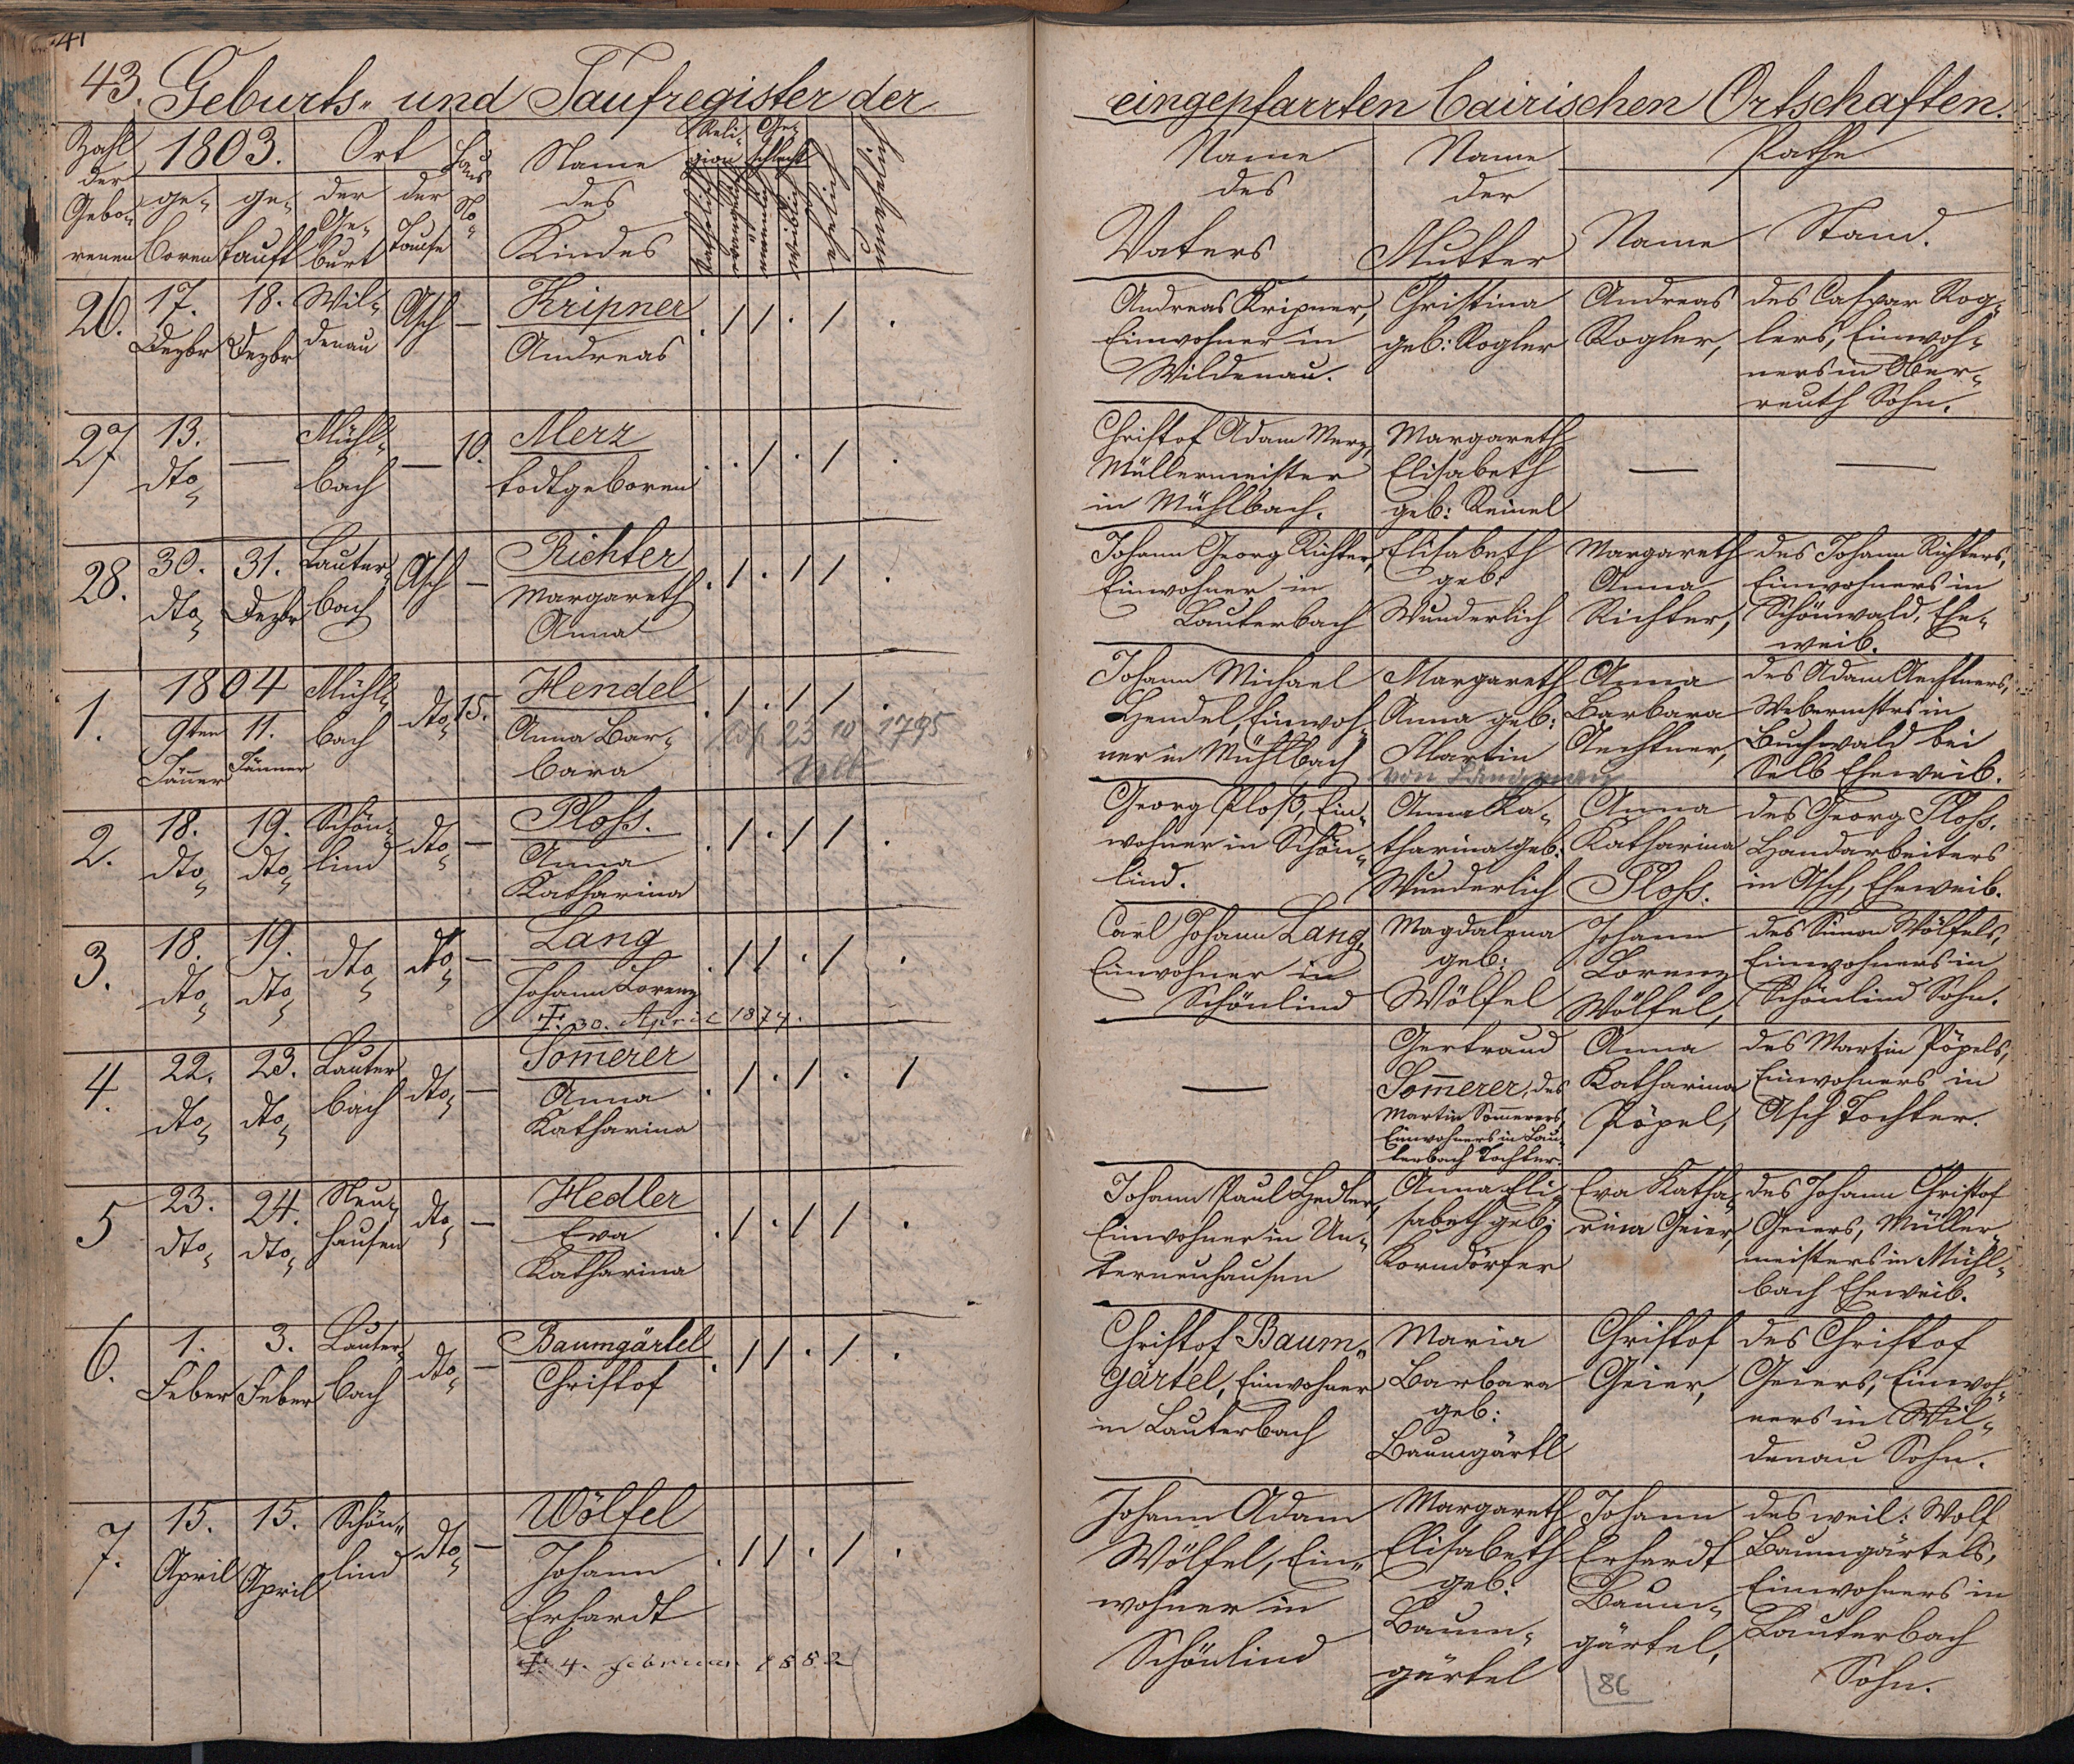 43. Geburts- und Taufregister der eingepfarrten bairischen Ortschaften.
Zahl der Gebo-renen
1803.
ge-boren
ge-tauft
Ort
der Ge-burt
der Taufe
Haus No
Name des Kindes
Reli-gion
Katholisch
evangelisch
Ge-schlecht
männlich
weiblich
ehelich
unehelich
Name des Vaters
Name der Mutter
Pathe
Name
Stand.
26.
17. Dezbr
18. Dezbr
Wil-
denau
Asch
—
Kripner
Andreas
Andreas Kripner,
Einwohner in
Wildenau.
Christina
geb: Rogler
Andreas
Rogler,
des Caspar Rog-
lers, Einwoh-
ners in Ober-
reuth Sohn.
27
13.
dto
—
Mühl-
bach
—
10.
Merz
todtgeboren
Christof Adam Merz,
Müllermeister
in Mühlbach.
Margareth
Elisabeth
geb: Reinel
—
—
28.
30.
dto
31.
Dezbr
Lauter-
bach
Asch
—
Richter
Margareth
Anna
Johann Georg Richter,
Einwohner in
Lauterbach
Elisabeth
geb:
Wunderlich
Margareth
Anna
Richter,
des Johann Richters,
Einwohners in
Schönwald, Ehe-
weib.
1804
1.
9ten
Jänner
11.
Jänner
Mühl-
bach
dto
15.
Hendel
Anna Bar-
bara
23 10 1795
Selb
Johann Michael
Hendel, Einwoh-
ner in Mühlbach
Margareth
Anna geb:
Martin
von
Anna
Barbara
Aechtner,
des Adam Aechtners,
Webermstrs in
Buchwald bei
Selb Eheweib.
2.
18.
dto
19.
dto
Schön-
lind
dto
—
Ploss.
Anna
Katharina
Georg Ploß, Ein-
wohner in Schön-
lind.
Anna Ka-
tharina geb:
Wunderlich
Anna
Katharina
Ploss.
des Georg Ploss.
Handarbeiters
in Asch, Eheweib.
3.
18.
dto
19.
dto
dto
dto
—
Lang
Johann Lorenz
†. 30. April 1874.
Carl Johann Lang,
Einwohner in
Schönlind
Magdalena
geb:
Wölfel
Johann
Lorenz
Wölfel,
des Simon Wölfels,
Einwohners in
Schönlind Sohn.
4.
22.
dto
23.
dto
Lauter
bach
dto
—
Som̄erer
Anna
Katharina
—
Gertraud
Som̄erer, des
Martin Som̄erers,
Einwohners in Lau-
terbach Tochter.
Anna
Katharina
Pöpel,
des Martin Pöpels,
Einwohners in
Asch Tochter.
5
23.
dto
24.
dto
Neu-
hausen
dto
—
Hedler
Eva
Katharina
Johann Paul Hedler,
Einwohner in Un-
terneuhausen
Anna Eli-
sabeth geb:
Korndörfer
Eva Katha-
rina Geier,
des Johann Christof
Geiers, Müller-
meisters in Mühl-
bach Eheweib.
6.
1.
Feber
3.
Feber
Lauter-
bach
dto
—
Baumgärtel
Christof
Christof Baum-
gärtel, Einwohner
in Lauterbach
Maria
Barbara
geb:
Baumgärtl
Christof
Geier,
des Christof
Geiers, Einwoh-
ners in Wil-
denau Sohn.
7.
15.
April
15.
April
Schön-
lind
dto
—
Wölfel
Johann
Erhardt
†. 4. Februar 1882
Johann Adam
Wölfel, Ein-
wohner in
Schönlind
Margareth
Elisabeth
geb:
Baum-
gärtel
Johann
Erhardt
Baum-
gärtel,
des weil: Wolf
Baumgärtels,
Einwohners in
Lauterbach
Sohn.
86